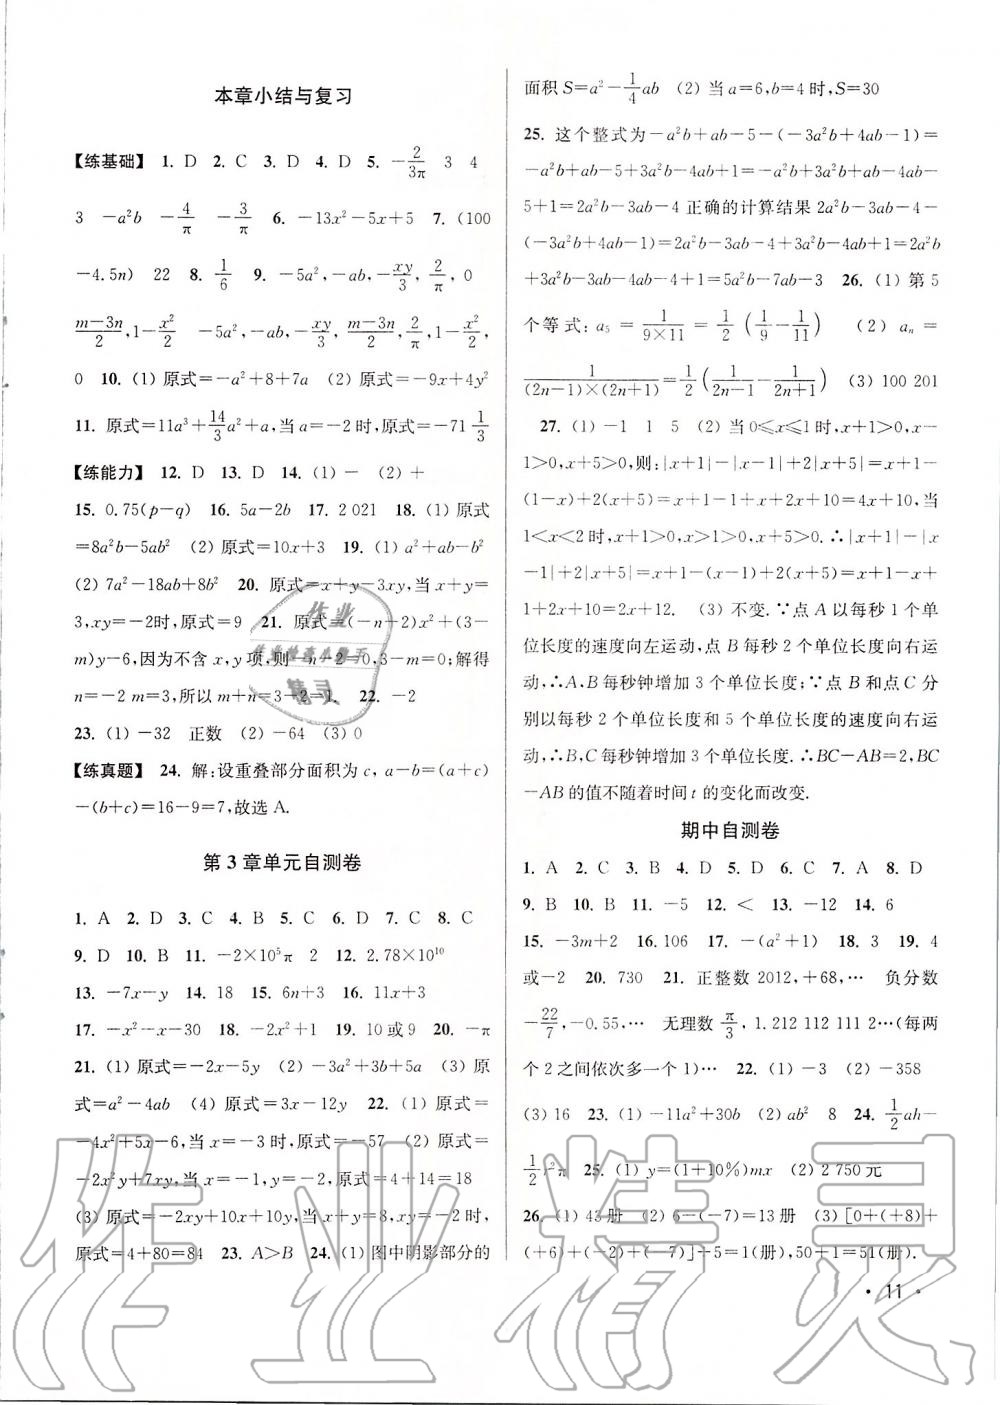 本章小结与复习
【练基础】 1. D 2. C 3. D 4. D 5. －2/3π 3 4
3 －a²b －4/π －3/π 6. －13x²－5x＋5 7. (100
－4.5n) 22 8. 1/6 9. －5a²,－ab,－xy/3,2/π,0
m－3n/2,1－x²/2 －5a²,－ab,－xy/3,m－3n/2,2/π,1－x²/2,
0 10. (1) 原式＝－a²＋8＋7a (2) 原式＝－9x＋4y²
11. 原式＝11a³＋14/3a²＋a,当a＝－2时,原式＝－71 1/3
【练能力】 12. D 13. D 14. (1)－ (2)＋
15. 0.75(p－q) 16. 5a－2b 17. 2 021 18. (1) 原式
＝8a²b－5ab² (2) 原式＝10x＋3 19. (1) a²＋ab－b²
(2) 7a²－18ab＋8b² 20. 原式＝x＋y－3xy,当x＋y＝
3,xy＝－2时,原式＝9 21. 原式＝(－n＋2)x²＋(3－
m)y－6,因为不含x,y项,则－n－2＝0,3－m＝0;解得
n＝－2 m＝3,所以m＋n＝3－2＝1. 22. －2
23. (1)－32 正数 (2)－64 (3) 0
【练真题】 24. 解:设重叠部分面积为c, a－b＝(a＋c)
－(b＋c)＝16－9＝7,故选A.
第3章单元自测卷
1. A 2. D 3. C 4. B 5. C 6. D 7. C 8. C
9. D 10. B 11. －2×10⁵π 2 12. 2.78×10¹⁰
13. －7x－y 14. 18 15. 6n＋3 16. 11x＋3
17. －x²－x－30 18. －2x²＋1 19. 10或9 20. －π
21. (1) 原式＝－2x－5y (2) －3a²＋3b＋5a (3) 原
式＝a²－4ab (4) 原式＝3x－12y 22. (1) 原式＝
－4x²＋5x－6,当x＝－3时,原式＝－57 (2) 原式＝
－2x²y＋7xy,当x＝－1,y＝－2,原式＝4＋14＝18
(3) 原式＝－2xy＋10x＋10y,当x＋y＝8,xy＝－2时,
原式＝4＋80＝84 23. A＞B 24. (1) 图中阴影部分的
面积S＝a²－1/4ab (2) 当a＝6,b＝4时,S＝30
25. 这个整式为－a²b＋ab－5－(－3a²b＋4ab－1)＝
－a²b＋ab－5＋3a²b－4ab＋1＝－a²b＋3a²b＋ab－4ab－
5＋1＝2a²b－3ab－4正确的计算结果2a²b－3ab－4－
(－3a²b＋4ab－1)＝2a²b－3ab－4＋3a²b－4ab＋1＝2a²b
＋3a²b－3ab－4ab－4＋1＝5a²b－7ab－3 26. (1) 第5
个等式:a₅＝1/(9×11)＝1/2(1/9－1/11) (2) aₙ＝
1/((2n－1)×(2n＋1))＝1/2(1/(2n－1)－1/(2n＋1)) (3) 100 201
27. (1)－1 1 5 (2) 当0≤x≤1时,x＋1＞0,x－
1＞0,x＋5＞0,则:|x＋1|－|x－1|＋2|x＋5|＝x＋1－
(1－x)＋2(x＋5)＝x＋1－1＋x＋2x＋10＝4x＋10,当
1＜x＜2时,x＋1＞0,x＞1＞0,x＋5＞0.∴|x＋1|－|x
－1|＋2|x＋5|＝x＋1－(x－1)＋2(x＋5)＝x＋1－x＋
1＋2x＋10＝2x＋12. (3) 不变.∵点A以每秒1个单
位长度的速度向左运动,点B每秒2个单位长度向右运
动,∴A,B每秒钟增加3个单位长度;∵点B和点C分
别以每秒2个单位长度和5个单位长度的速度向右运
动,∴B,C每秒钟增加3个单位长度.∴BC－AB＝2,BC
－AB的值不随着时间t的变化而改变.
期中自测卷
1. A 2. C 3. B 4. D 5. D 6. C 7. A 8. D
9. B 10. B 11. －5 12. ＜ 13. －12 14. 6
15. －3m＋2 16. 106 17. －(a²＋1) 18. 3 19. 4
或－2 20. 730 21. 正整数2012,＋68,… 负分数
－22/7,－0.55,… 无理数π/3,1.212 112 111 2…(每两
个2之间依次多一个1)… 22. (1)－3 (2)－358
(3) 16 23. (1)－11a²＋30b (2) ab² 8 24. 1/2ah－
1/2r²π 25. (1) y＝(1＋10%)mx (2) 2 750元
26. (1) 43册 (2) 6－(－7)＝13册 (3) [0＋(＋8)＋
(＋6)＋(－2)＋(－7)]÷5＝1(册),50＋1＝51(册).
· 11 ·
作业
精灵
作业精灵